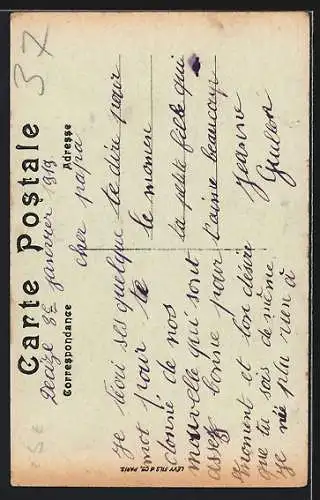 37
Carte Postale
Correspondance
Adresse
janvier 1919
cher papa
je técri ses quelque
mot pour te
donné de nos
nouvelle qui sont
assez bonne pour
moment et lon désire
que tu sois de même
je née plu rien à
te dire pour
le momen
ta petite fille qui
taime beaucoup
Jeanne
LÉVY FILS & Cie, PARIS.